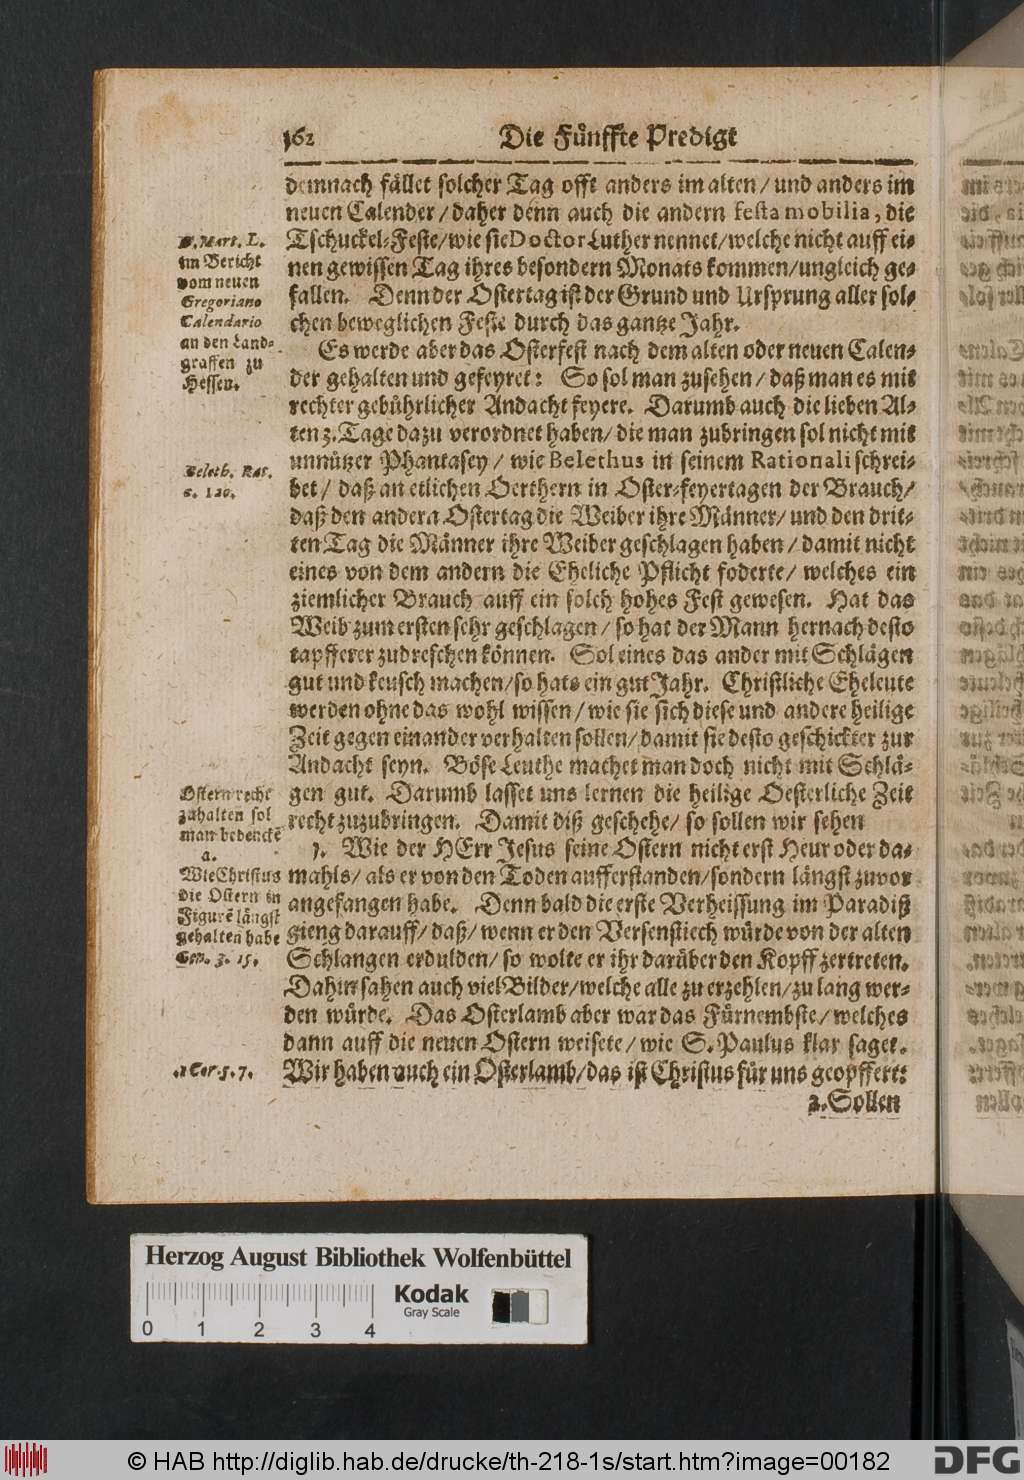 162
Die Fünffte Predigt
demnach fället solcher Tag offt anders im alten / und anders im
neuen Calender / daher denn auch die andern festa mobilia, die
Tschuckel-Feste / wie sie Doctor Luther nennet / welche nicht auff ei-
nen gewissen Tag ihres besondern Monats kommen / ungleich ge-
fallen. Denn der Ostertag ist der Grund und Ursprung aller sol-
chen beweglichen Feste durch das gantze Jahr.
Es werde aber das Osterfest nach dem alten oder neuen Calen-
der gehalten und gefeyret: So sol man zusehen / daß man es mit
rechter gebührlicher Andacht feyere. Darumb auch die lieben Al-
ten 3. Tage dazu verordnet haben / die man zubringen sol nicht mit
unnützer Phantasey / wie Belethus in seinem Rationali schrei-
bet / daß an etlichen Oerthern in Oster-feyertagen der Brauch /
daß den andern Ostertag die Weiber ihre Männer / und den drit-
ten Tag die Männer ihre Weiber geschlagen haben / damit nicht
eines von dem andern die Eheliche Pflicht foderte / welches ein
ziemlicher Brauch auff ein solch hohes Fest gewesen. Hat das
Weib zum ersten sehr geschlagen / so hat der Mann hernach desto
tapfferer zudreschen können. Sol eines das ander mit Schlägen
gut und keusch machen / so hats ein gut Jahr. Christliche Eheleute
werden ohne das wohl wissen / wie sie sich diese und andere heilige
Zeit gegen einander verhalten sollen / damit sie desto geschickter zur
Andacht seyn. Böse Leuthe machet man doch nicht mit Schlä-
gen gut. Darumb lasset uns lernen die heilige Oesterliche Zeit
recht zuzubringen. Damit diß geschehe / so sollen wir sehen
1. Wie der HErr Jesus seine Ostern nicht erst Heur oder da-
mahls / als er von den Toden aufferstanden / sondern längst zuvor
angefangen habe. Denn bald die erste Verheissung im Paradiß
gieng darauff / daß / wenn er den Versenstiech würde von der alten
Schlangen erdulden / so wolte er ihr darüber den Kopff zertreten.
Dahin sahen auch viel Bilder / welche alle zu erzehlen / zu lang wer-
den würde. Das Osterlamb aber war das Fürnembste / welches
dann auff die neuen Ostern weisete / wie S. Paulus klar saget.
Wir haben auch ein Osterlamb / das ist Christus für uns geopffert:
2. Sollen
D. Mart. L.
im Bericht
vom neuen
Gregoriano
Calendario
an den Land-
graffen zu
Hessen.
Beleth. Rat.
c. 120.
Ostern recht
zuhalten sol
man bedenckē
a.
Wie Christus
die Ostern in
Figurē längst
gehalten habe
Gen. 3. 15.
1 Cor. 5. 7.
Herzog August Bibliothek Wolfenbüttel
Kodak
Gray Scale
0 1 2 3 4
© HAB http://diglib.hab.de/drucke/th-218-1s/start.htm?image=00182
DFG